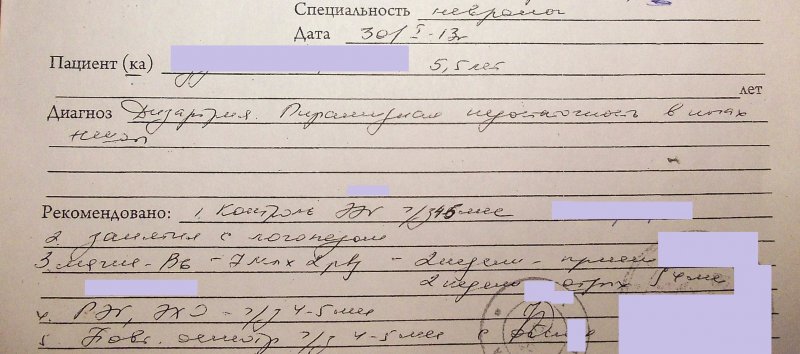 Специальность невролог
Дата 30/I-13г
Пациент (ка) 5,5 лет
лет
Диагноз Дизартрия. Пирамидная недостаточность в ногах
Рекомендовано: 1. Контроль ч/з 45 мес
2. занятия с логопедом
3. магне-В6 - 2 р/д - 2 недели - прием
2 недели отдых
4. РЭГ, ЭХО - ч/з 4-5 мес
5. Повт. осмотр ч/з 4-5 мес с